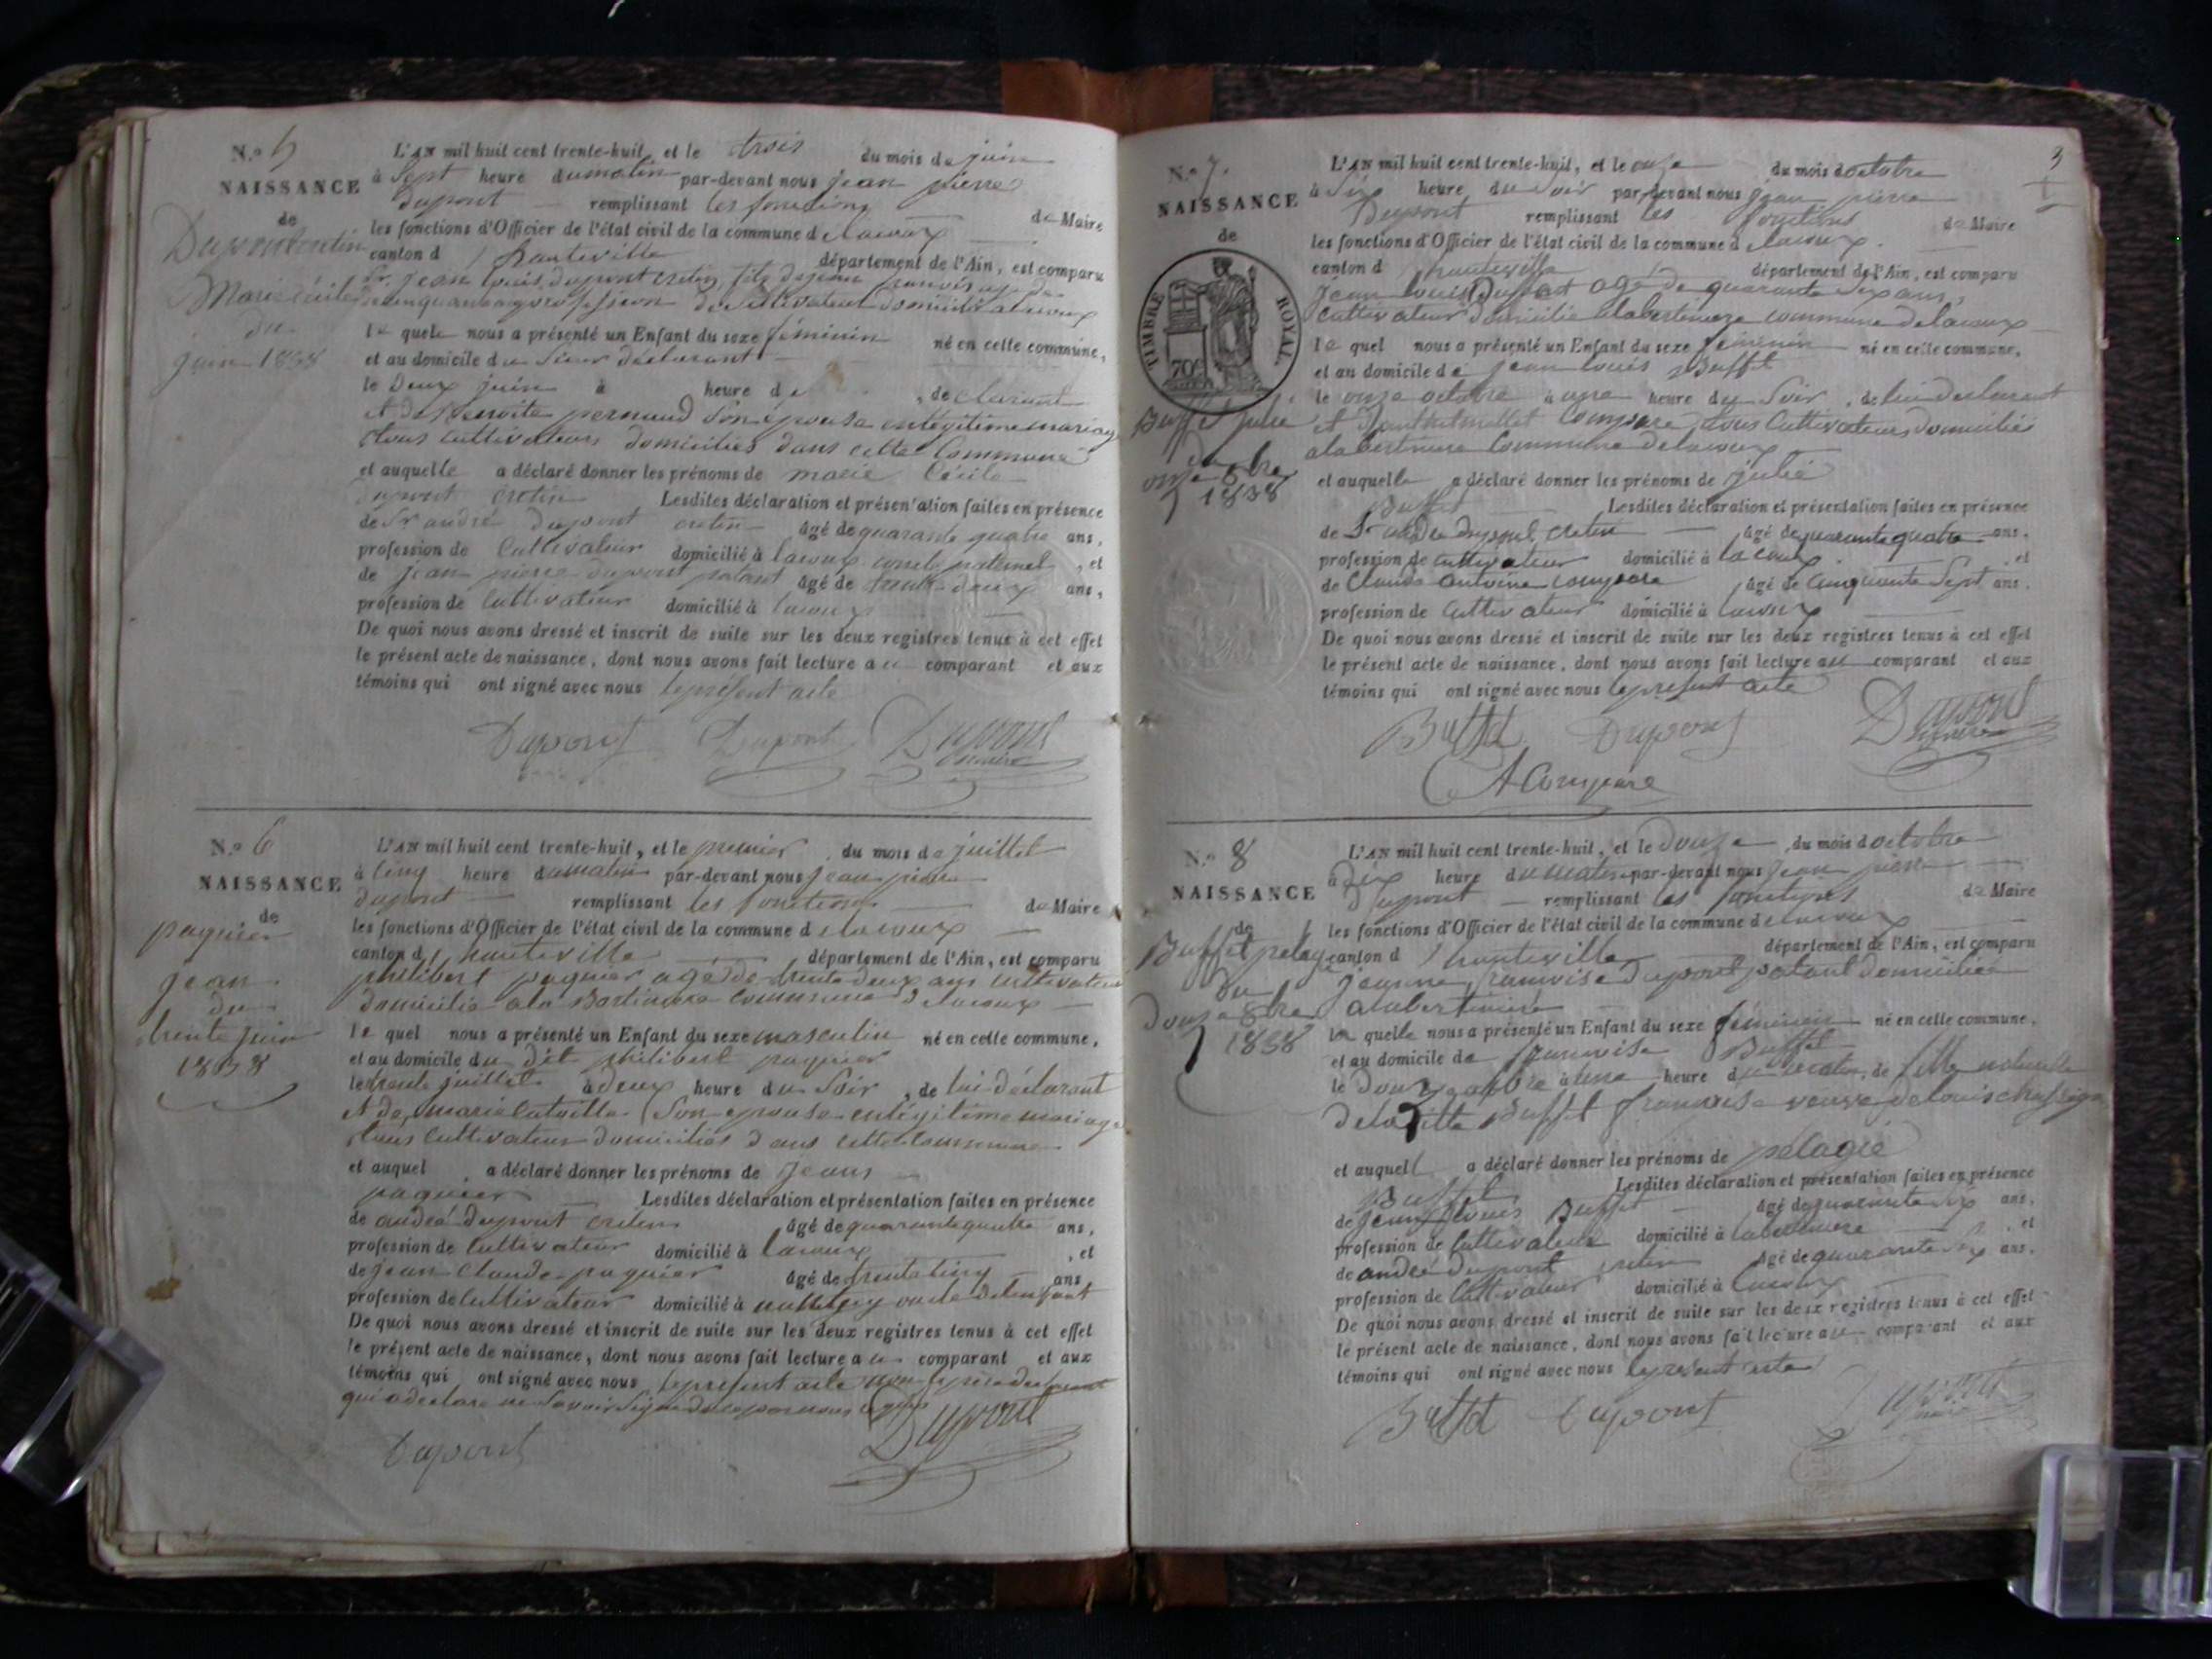 N.o 5
NAISSANCE
de
Dupont cretin
Marie Cécile
du
juin 1838
L'AN mil huit cent trente-huit, et le trois du mois de juin
à Sept heure du matin par-devant nous jean pierre
dupont remplissant les fonctions de Maire
les fonctions d'Officier de l'état civil de la commune de lacoux
canton d'hauteville département de l'Ain, est comparu
Sr. jean louis dupont cretin, fils de jean françois
profession de cultivateur domicilié a lacoux
le quel nous a présenté un Enfant du sexe féminin né en cette commune,
et au domicile du Sieur déclarant
le Deux juin à heure de , de clarant
et de pernaud Son épouse en légitime mariage
tous cultivateurs domiciliés dans cette Commune
et auquelle a déclaré donner les prénoms de marie Cécile
dupont cretin Lesdites déclaration et présentation faites en présence
de Sr andré dupont cretin âgé de quarante quatre ans,
profession de Cultivateur domicilié à lacoux oncle paternel, et
de jean pierre dupont patant âgé de trente deux ans,
profession de Cultivateur domicilié à lacoux
De quoi nous avons dressé et inscrit de suite sur les deux registres tenus à cet effet
le présent acte de naissance, dont nous avons fait lecture au comparant et aux
témoins qui ont signé avec nous le présent acte
Dupont Dupont Dupont
maire
N.o 6
NAISSANCE
de
paquier
jean
du
trente juin
1838
L'AN mil huit cent trente-huit, et le premier du mois de juillet
à Cinq heure du matin par-devant nous jean pierre
dupont remplissant les fonctions de Maire
les fonctions d'Officier de l'état civil de la commune de lacoux
canton d'hauteville département de l'Ain, est comparu
philibert paquier agé de trente deux ans cultivateur
domicilié a la Bertiniere commune de lacoux
le quel nous a présenté un Enfant du sexe masculin né en cette commune,
et au domicile du dit philibert paquier
le trente juillet à deux heure du Soir, de lui déclarant
et de marie Son epouse en légitime mariage
tous Cultivateurs domiciliés dans cette Commune
et auquel a déclaré donner les prénoms de jean
paquier Lesdites déclaration et présentation faites en présence
de andré dupont cretin âgé de quarante quatre ans,
profession de Cultivateur domicilié à lacoux, et
de jean Claude paquier âgé de trente Cinq ans
profession de Cultivateur domicilié à oncle de lenfant
De quoi nous avons dressé et inscrit de suite sur les deux registres tenus à cet effet
le présent acte de naissance, dont nous avons fait lecture au comparant et aux
témoins qui ont signé avec nous le présent acte
qui a déclaré ne Savoir Signer
Dupont Dupont
3
N.o 7.
NAISSANCE
de
TIMBRE ROYAL
70c
Buffet julie
du
onze 8bre
1838
L'AN mil huit cent trente-huit, et le onze du mois doctobre
à Six heure du Soir par-devant nous jean pierre
Dupont remplissant les fonctions de Maire
les fonctions d'Officier de l'état civil de la commune de lacoux.
canton d'hauteville département de l'Ain, est comparu
jean louis Buffet agé de quarante Six ans,
Cultivateur domicilié a la bertiniere commune de lacoux
le quel nous a présenté un Enfant du sexe féminin né en cette commune,
et au domicile de jean louis Buffet
le onze octobre à une heure du Soir, de lui déclarant
et Compere tous Cultivateurs domiciliés
a la bertiniere Commune de lacoux
et auquelle a déclaré donner les prénoms de julie
Buffet Lesdites déclaration et présentation faites en présence
de Sr andre dupont cretin âgé de quarante quatre ans.
profession de cultivateur domicilié à lacoux et
de Claude antoine compere âgé de Cinquante Sept ans.
profession de Cultivateur domicilié à lacoux
De quoi nous avons dressé et inscrit de suite sur les deux registres tenus à cet effet
le présent acte de naissance, dont nous avons fait lecture au comparant et aux
témoins qui ont signé avec nous le present acte
Buffet Dupont Dupont
maire
A Compere
N.o 8
NAISSANCE
de
Buffet pelagie
du
Douze 8bre
1838
L'AN mil huit cent trente-huit, et le Douze du mois doctobre
à Dix heure du matin par-devant nous jean pierre
Dupont remplissant les fonctions de Maire
les fonctions d'Officier de l'état civil de la commune de lacoux
canton d'hauteville département de l'Ain, est comparu
jeanne francoise dupont patant domiciliée
a la bertiniere
la quelle nous a présenté un Enfant du sexe féminin né en cette commune,
et au domicile de francoise Buffet
le Douze octobre à une heure du matin, de fille naturelle
de la ditte Buffet françoise veuve de louis
et auquell a déclaré donner les prénoms de pelagie
Buffet Lesdites déclaration et présentation faites en présence
de jean louis Buffet âgé de quarante six ans,
profession de Cultivateur domicilié à la bertiniere, et
de andré dupont cretin âgé de quarante six ans.
profession de Cultivateur domicilié à lacoux
De quoi nous avons dressé et inscrit de suite sur les deux registres tenus à cet effet
le présent acte de naissance, dont nous avons fait lecture au comparant et aux
témoins qui ont signé avec nous le present acte
Buffet Dupont Dupont
maire